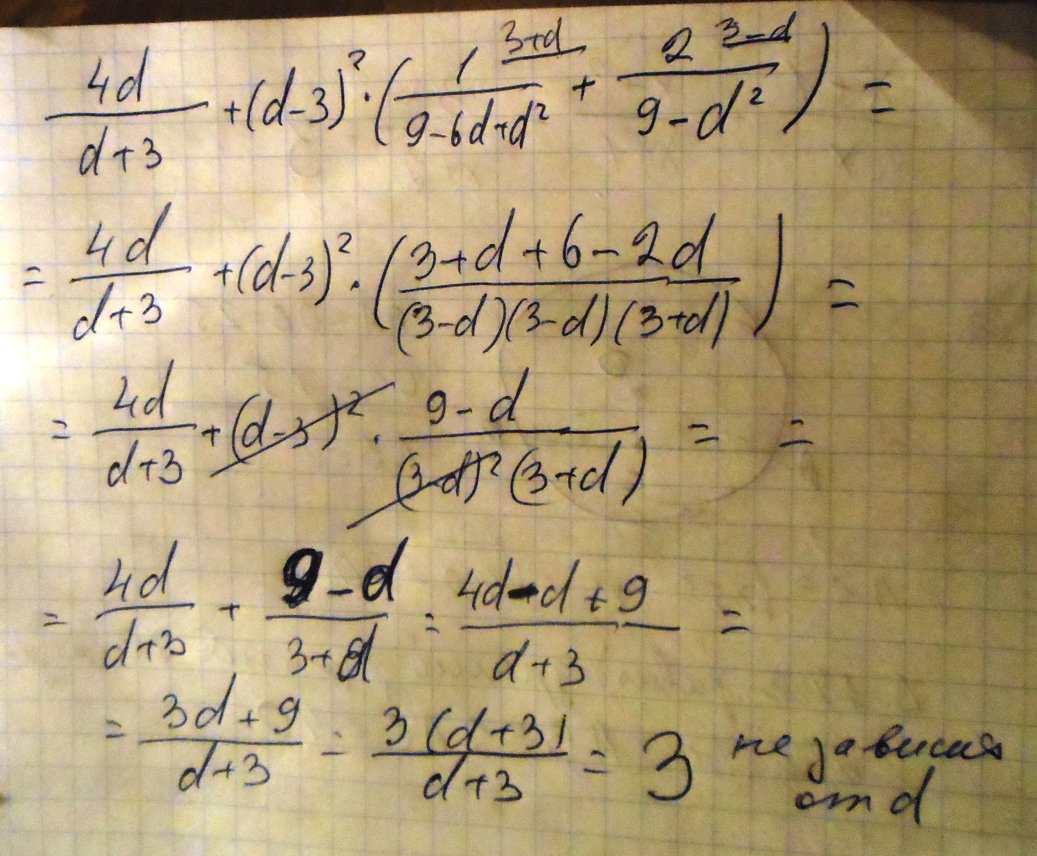 4d/(d+3) + (d-3)² · (1 3+d/(9-6d+d²) + 2 3-d/(9-d²)) =
= 4d/(d+3) + (d-3)² · ((3+d+6-2d)/((3-d)(3-d)(3+d))) =
= 4d/(d+3) + (d-3)² · (9-d)/((3-d)²(3+d)) = =
= 4d/(d+3) + (9-d)/(3+d) = (4d-d+9)/(d+3) =
= (3d+9)/(d+3) = 3(d+3)/(d+3) = 3 не зависит от d